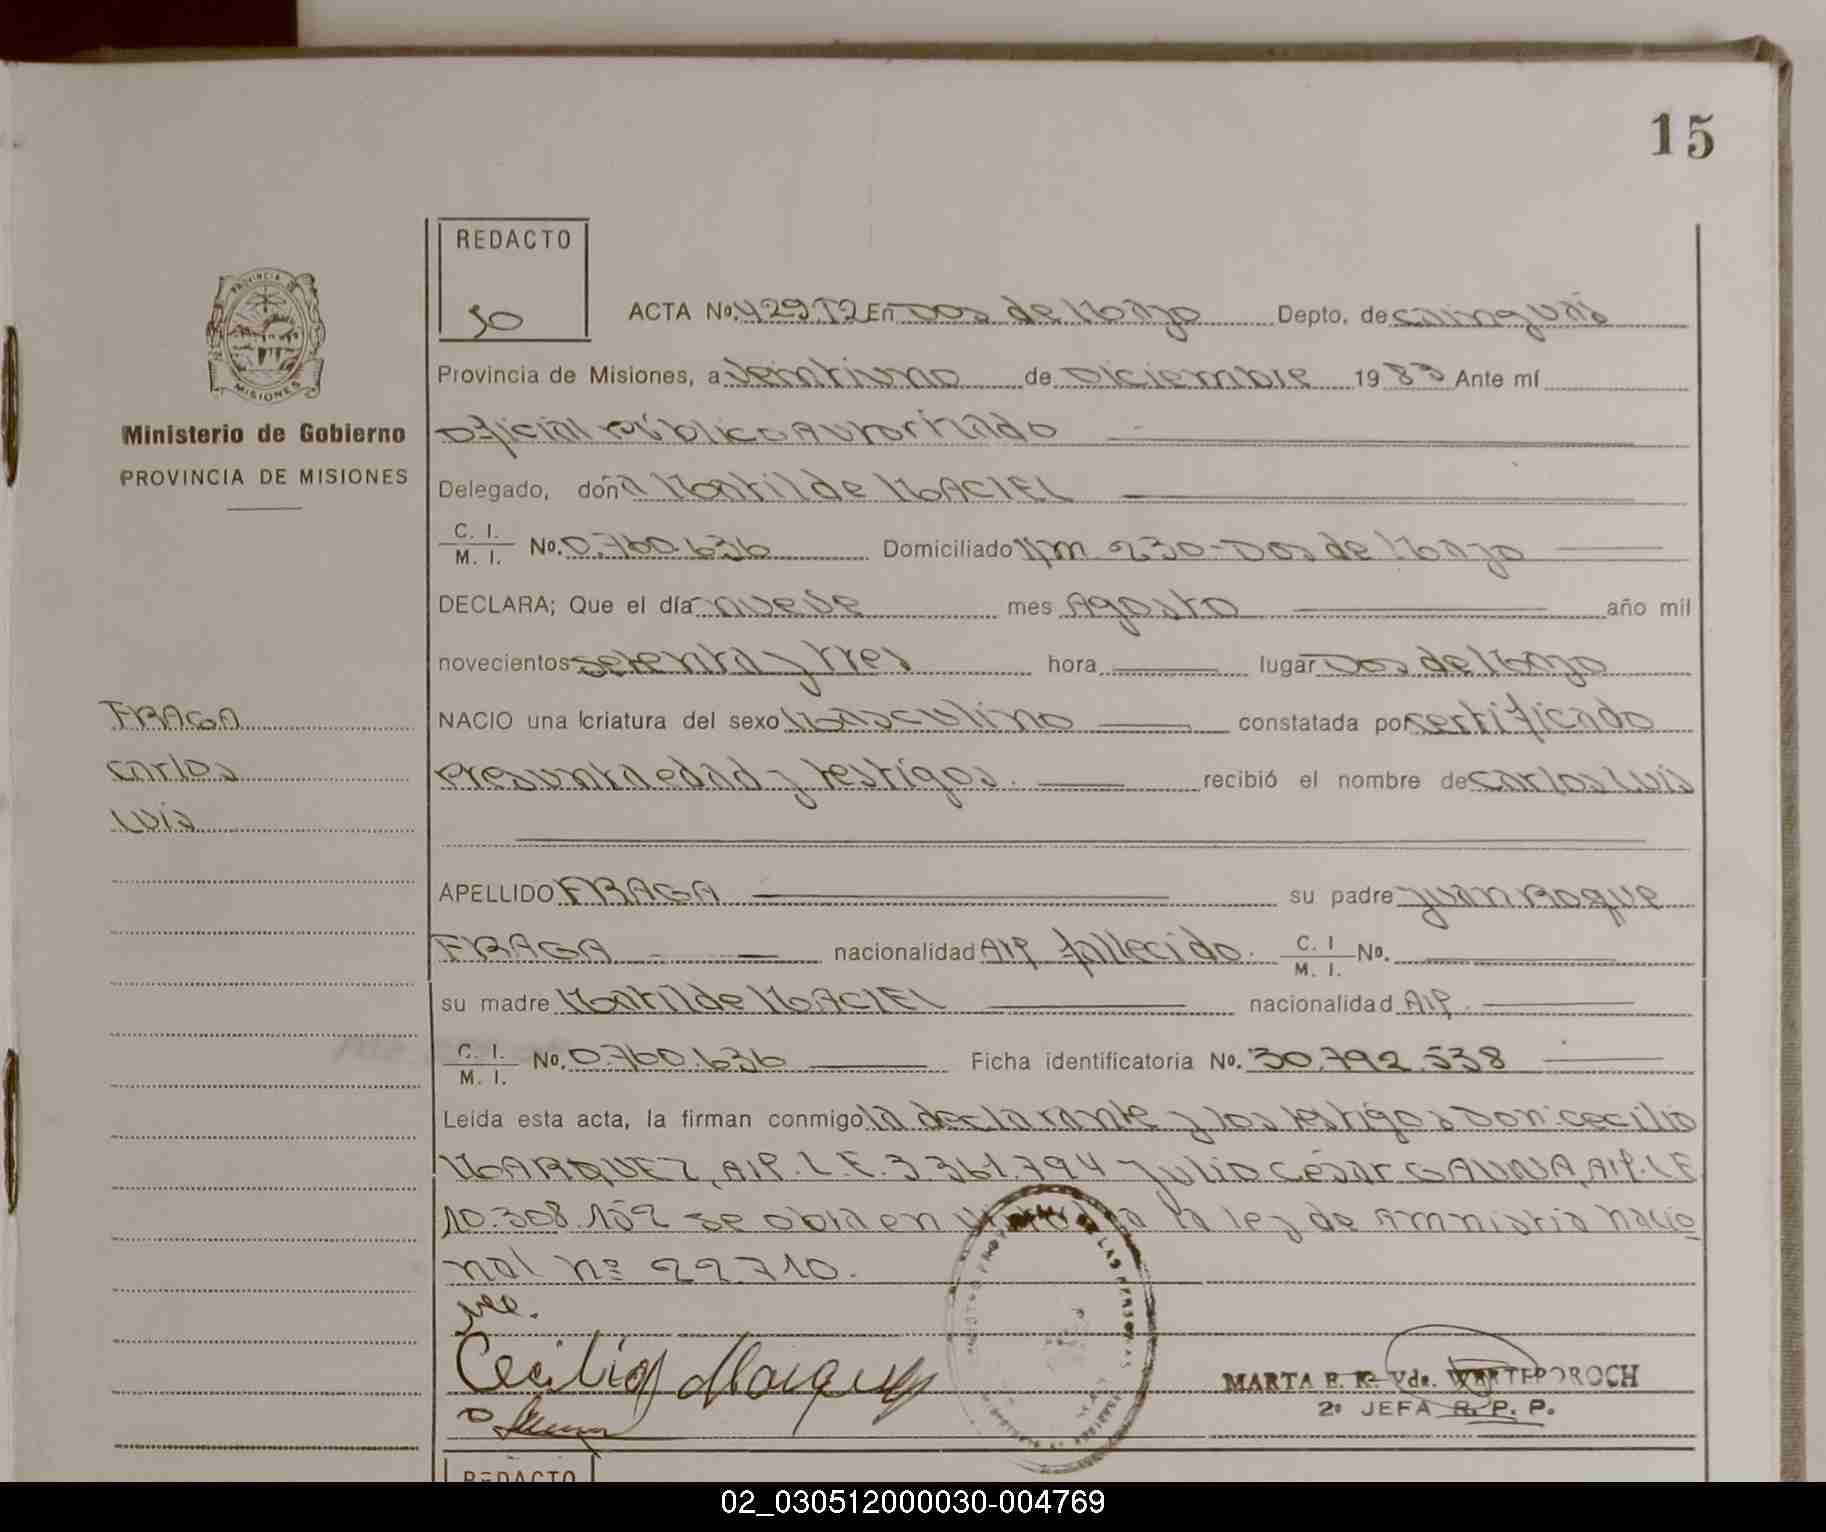 15
REDACTO
30
ACTA No. 429 T2 En Dos de Marzo Depto, de Cainguás
Provincia de Misiones, a Veintiuno de Diciembre 1983 Ante mí
Oficial Público Autorizado
Ministerio de Gobierno
PROVINCIA DE MISIONES
Delegado, doña Matilde MACIEL
C. I. M. I. No. 0.760.636 Domiciliado Km 230-Dos de Marzo
DECLARA; Que el día nueve mes Agosto año mil
novecientos setenta y tres hora lugar Dos de Marzo
FRAGA
Carlos
Luis
NACIO una criatura del sexo Masculino constatada por certificado
presunta edad y testigos. recibió el nombre de Carlos Luis
APELLIDO FRAGA su padre Juan Roque
FRAGA nacionalidad Arg fallecido. C. I M. I. No.
su madre Matilde MACIEL nacionalidad Arg.
C. I. M. I. No. 0.760.636 Ficha identificatoria No. 30.792.538
Leída esta acta, la firman conmigo la declarante y los testigos Don: Cecilio
MARQUEZ, Arg. L.E. 3.361.794 y Julio César GAUNA, Arg. L E
10.308.152 se obra en la ley de Amnistia nacio
nal nº 22.710.
Cecilio Marquez
MARTA E. K. Vda.
2ª JEFA R. P. P.
REDACTO
02_030512000030-004769